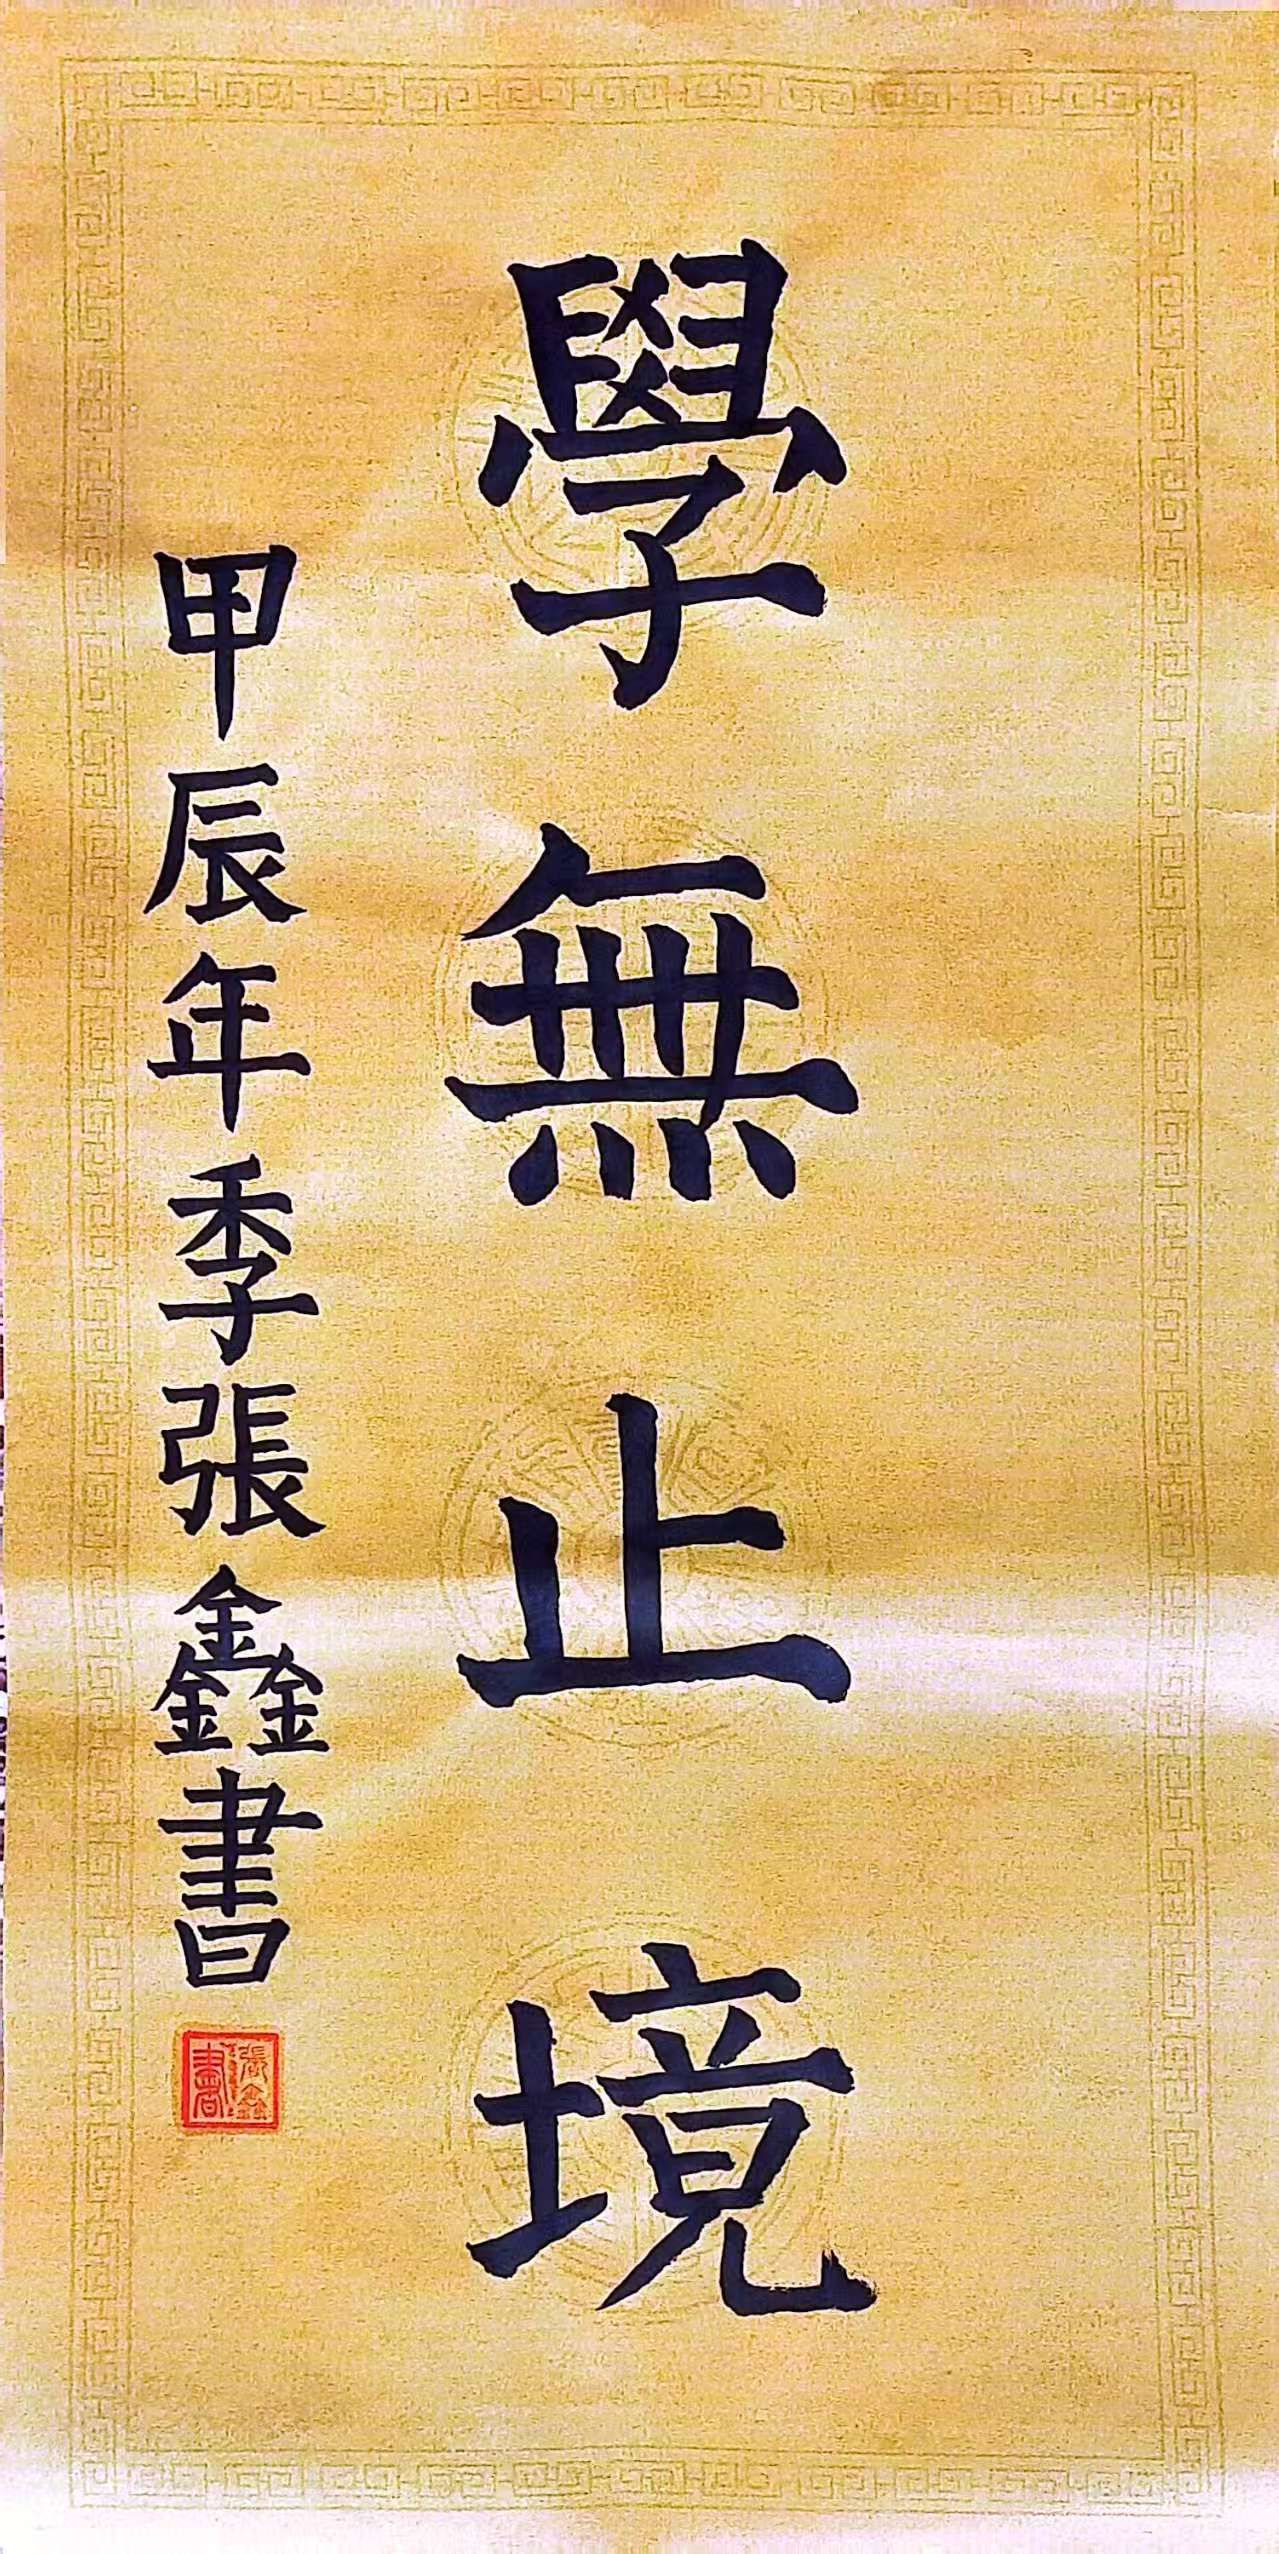 學無止境
甲辰年季張鑫書
張鑫書